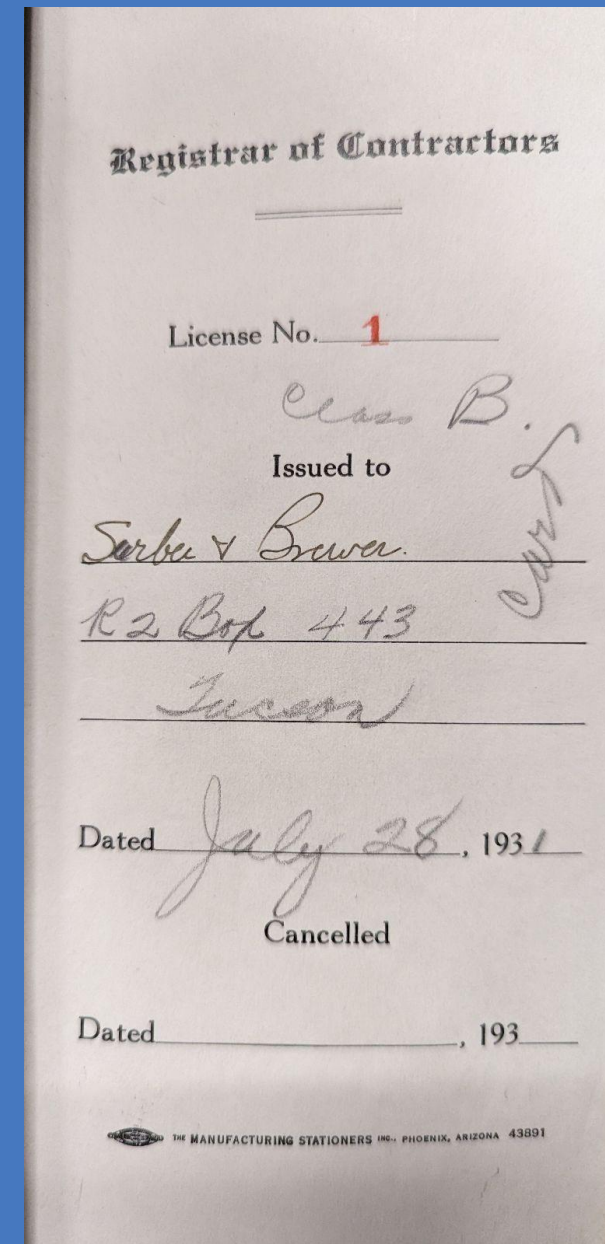 Registrar of Contractors
License No. 1
Class B.
Issued to
Sorbee & Brewer.
R2 Box 443
Tucson
Dated July 28, 1931
Cancelled
Dated , 193
THE MANUFACTURING STATIONERS INC., PHOENIX, ARIZONA 43891